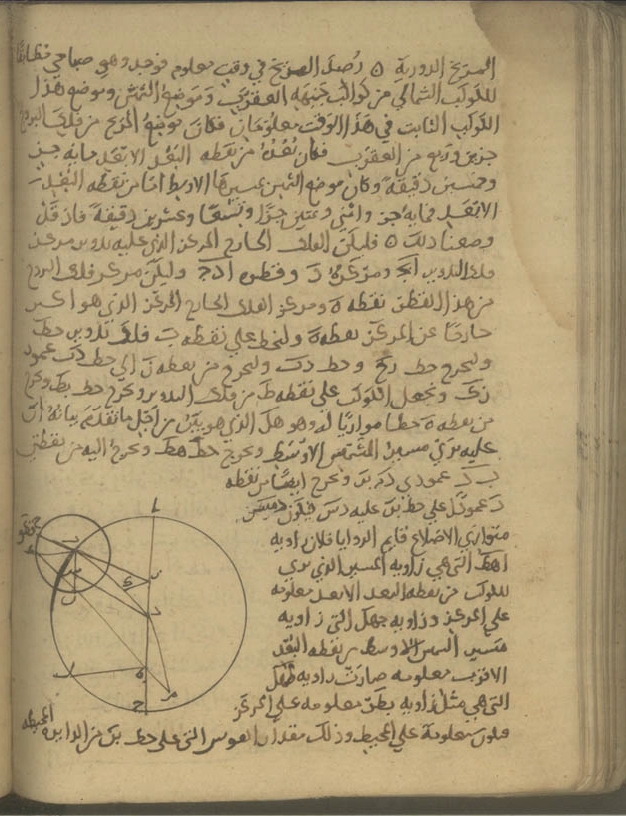 المريخ الدورية ٥ رُصِدَ المريخ في وقت معلوم فوجد وهو صباحي
للكوكب الشمالي من كواكب جبهه العقرب وموضع الشمس وموضع هذا
الكوكب الثابت في هذا الوقت معلومان فكان موضع المريخ من فلك البروج
جزين وربع من العقرب فكان بُعْدُهُ من نقطه البُعْد الابعد مايه جز
وخمسين دقيقة وكان موضع الشمس بمسيرها الاوسط اما من نقطه البُعْد
الابعد فمايه جز واثني وثمنين جزًا وتسعًا وعشرين دقيقةً فاذ قد
وصفنا ذلك ٥ فليكن الفلك الخارج المركز الذي عليه يدور مركز
فلك التدوير ومركزه د وقطره وليكن مركز فلك البروج
من هذا القطر نقطه ه ومركز الفلك الخارج المركز الذي هو اكثر
خارجًا عن المركز نقطه ولنخط علي نقطه ب فلك تدوير
ولنخرج خط وخط دب ولنخرج من نقطه ن الي خط دب عمود
ونجعل الكوكب علي نقطه ط من فلك التدوير ونخرج خط بط ونخرج
من نقطه ه خطا موازيًا له وهو هل الذي هو بين من اجل ما تقدم بيانه ان
عليه يري مسير الشمس الاوسط ونخرج خط هط ونخرج اليه من نقطتي
ب د عمودي دم بن ونخرج ايضًا من نقطه
د عمودًا علي خط بن عليه دس فيكون
متوازي الاضلاع قايم الزوايا فلان زاويه
اهط التي هي زاويه المسير الذي يري
للكوكب من نقطه البعد الابعد معلومه
علي المركز وزاويه جهل التي زاويه
مسير الشمس الاوسط من نقطه البُعْد
الاقرب معلومه صارت زاويه طهل
التي هي مثل زاويه بطن معلومه علي المركز
فتكون معلومة علي المحيط وذلك مقدار القوس التي علي خط بن من الدايره
المحيطه